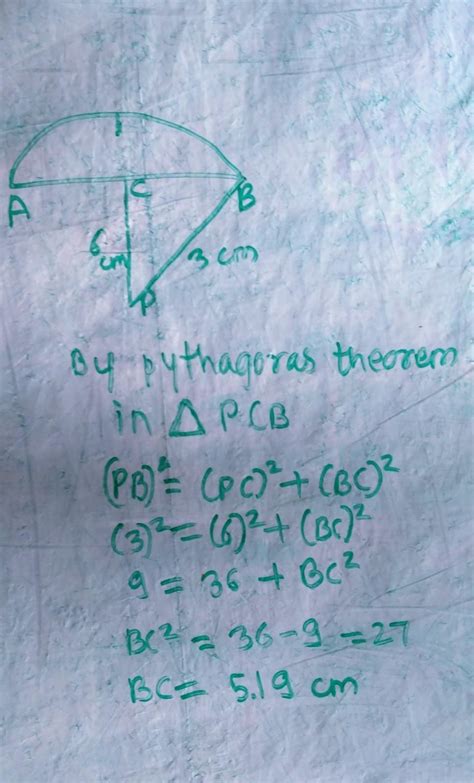 A
C
B
6
cm
3 cm
P
By pythagoras theorem
in Δ PCB
(PB)² = (PC)² + (BC)²
(3)² = (6)² + (BC)²
9 = 36 + BC²
BC² = 36 - 9 = 27
BC = 5.19 cm